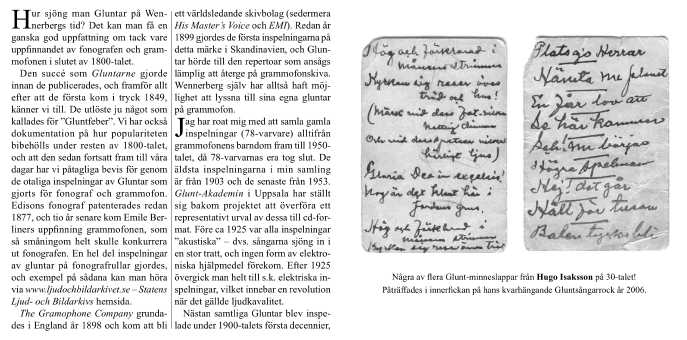 Hur sjöng man Gluntar på Wen-
nerbergs tid? Det kan man få en
ganska god uppfattning om tack vare
uppfinnandet av fonografen och gram-
mofonen i slutet av 1800-talet.
Den succé som Gluntarne gjorde
innan de publicerades, och framför allt
efter att de första kom i tryck 1849,
känner vi till. De utlöste ju något som
kallades för ”Gluntfeber”. Vi har också
dokumentation på hur populariteten
bibehölls under resten av 1800-talet,
och att den sedan fortsatt fram till våra
dagar har vi påtagliga bevis för genom
de otaliga inspelningar av Gluntar som
gjorts för fonograf och grammofon.
Edisons fonograf patenterades redan
1877, och tio år senare kom Emile Ber-
liners uppfinning grammofonen, som
så småningom helt skulle konkurrera
ut fonografen. En hel del inspelningar
av gluntar på fonografrullar gjordes,
och exempel på sådana kan man höra
via www.ljudochbildarkivet.se – Statens
Ljud- och Bildarkivs hemsida.
The Gramophone Company grunda-
des i England år 1898 och kom att bli
ett världsledande skivbolag (sedermera
His Master’s Voice och EMI). Redan år
1899 gjordes de första inspelningarna på
detta märke i Skandinavien, och Glun-
tar hörde till den repertoar som ansågs
lämplig att återge på grammofonskiva.
Wennerberg själv har alltså haft möj-
lighet att lyssna till sina egna gluntar
på grammofon.
Jag har roat mig med att samla gamla
inspelningar (78-varvare) alltifrån
grammofonens barndom fram till 1950-
talet, då 78-varvarnas era tog slut. De
äldsta inspelningarna i min samling
är från 1903 och de senaste från 1953.
Glunt-Akademin i Uppsala har ställt
sig bakom projektet att överföra ett
representativt urval av dessa till cd-for-
mat. Före ca 1925 var alla inspelningar
”akustiska” – dvs. sångarna sjöng in i
en stor tratt, och ingen form av elektro-
niska hjälpmedel förekom. Efter 1925
övergick man helt till s.k. elektriska in-
spelningar, vilket innebar en revolution
när det gällde ljudkvalitet.
Nästan samtliga Gluntar blev inspe-
lade under 1900-talets första decennier,
Hög och förklarad i
månens strimma
Kyrkan sig reser över
träd och hus!
Gloria Deo in excelsis!
Hög och förklarad i
månens strimma
Kyrkan sig reser över träd
Plats g's Herrar
Nämsta me planet
En får lov att
Se här kommer
Seb. Me börjas
Några spelmän
Hej! det går
Håll för tusan
Balen tycks bli
Några av flera Glunt-minneslappar från Hugo Isaksson på 30-talet!
Påträffades i innerfickan på hans kvarhängande Gluntsångarrock år 2006.